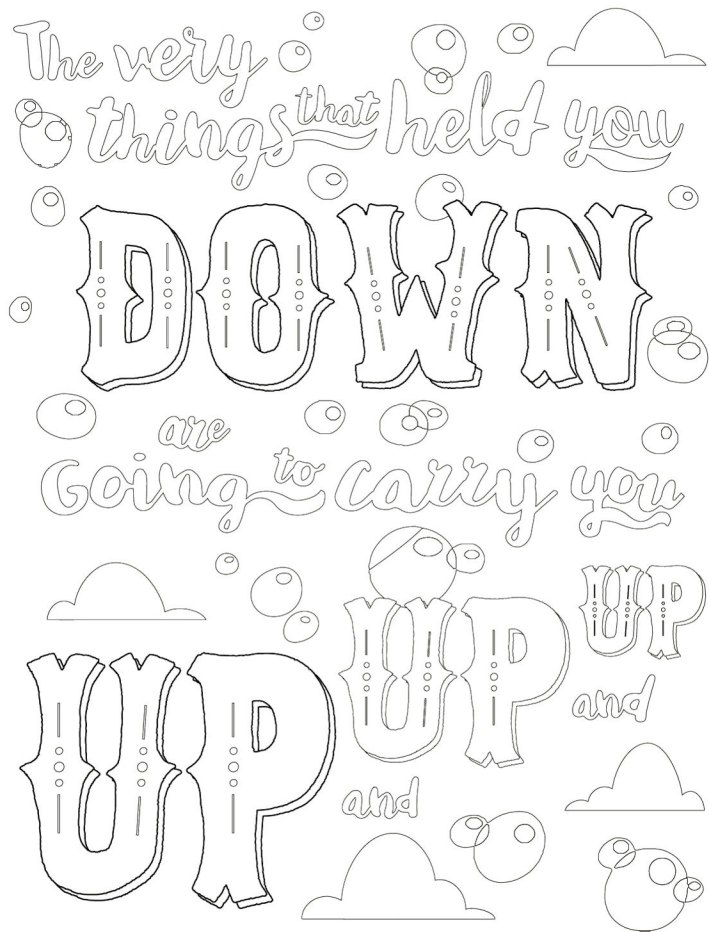 The very
things that held you
DOWN
are
Going to carry you
UP
and
UP
and
UP